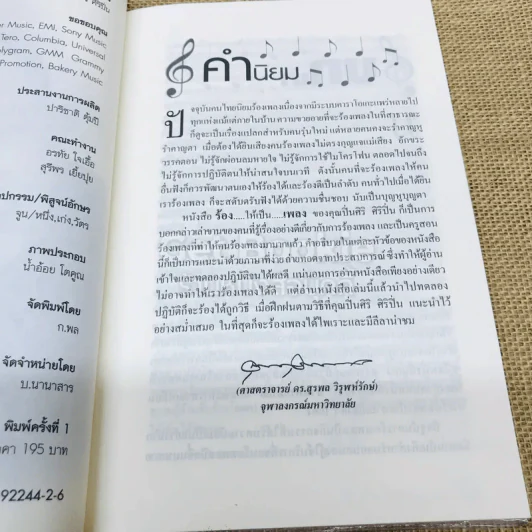 ศิริปิ่น
ขอขอบคุณ
or Music, EMI, Sony Music
Tero, Columbia, Universal
olygram, GMM Grammy
Promotion, Bakery Music
ประสานงานการผลิต
ปาริชาติ
คณะทำงาน
อรทัย ใจเอื้อ
สุรีพร เอี้ยปุย
ปกรรม/พิสูจน์อักษร
รูน/หนึ่ง,เก่ง,วัตร
ภาพประกอบ
น้ำอ้อย โตคูณ
จัดพิมพ์โดย
ก.พล
จัดจำหน่ายโดย
บ.นานาสาร
พิมพ์ครั้งที่ 1
ราคา 195 บาท
92244-2-6
คำนิยม
ปัจจุบันคนไทยนิยมร้องเพลงเนื่องจากมีระบบคาราโอเกะแพร่หลายไป
ทุกแห่งแม้แต่ภายในบ้าน ความขวยอายที่จะร้องเพลงในที่สาธารณะ
ก็ดูจะเป็นเรื่องแปลกสำหรับคนรุ่นใหม่ แต่หลายคนคงจะรำคาญหู
รำคาญตา เมื่อต้องได้ยินเสียงคนร้องเพลงไม่ตรงกุญแจแม่เสียง อักขระ
วรรคตอน ไม่รู้จักผ่อนลมหายใจ ไม่รู้จักการใช้ไมโครโฟน ตลอดไปจนถึง
ไม่รู้จักการปฏิบัติตนให้น่าสนใจบนเวที ดังนั้นคนที่จะร้องเพลงให้คน
อื่นฟังก็ควรพัฒนาตนเองให้ร้องได้และร้องดีเป็นลำดับ คนทั่วไปเมื่อได้ยิน
เราร้องเพลง ก็จะสดับตรับฟังได้ด้วยความชื่นชอบ นับเป็นบุญหูบุญตา
หนังสือ ร้อง.....ให้เป็น.....เพลง ของคุณปิ่นศิริ ศิริปิ่น ก็เป็นการ
บอกกล่าวเล่าขานของคนที่รู้เรื่องอย่างดีเกี่ยวกับการร้องเพลง และเป็นครูสอน
ร้องเพลงที่ทำให้คนร้องเพลงมามากแล้ว คำอธิบายในแต่ละหัวข้อของหนังสือ
นี้ก็เป็นการแนะนำด้วยภาษาที่ง่าย อ่านถอดจากประสบการณ์ ซึ่งทำให้ผู้อ่าน
เข้าใจและทดลองปฏิบัติจนได้ผลดี แน่นอนการอ่านหนังสือเพียงอย่างเดียว
ไม่อาจทำให้เราร้องเพลงได้ดี แต่อ่านหนังสือเล่มนี้แล้วนำไปทดลอง
ปฏิบัติก็จะร้องได้ถูกวิธี เมื่อฝึกฝนตามวิธีที่คุณปิ่นศิริ ศิริปิ่น แนะนำไว้
อย่างสม่ำเสมอ ในที่สุดก็จะร้องเพลงได้ไพเราะและมีลีลาน่าชม
(ศาสตราจารย์ ดร.สุรพล วิรุฬห์รักษ์)
จุฬาลงกรณ์มหาวิทยาลัย